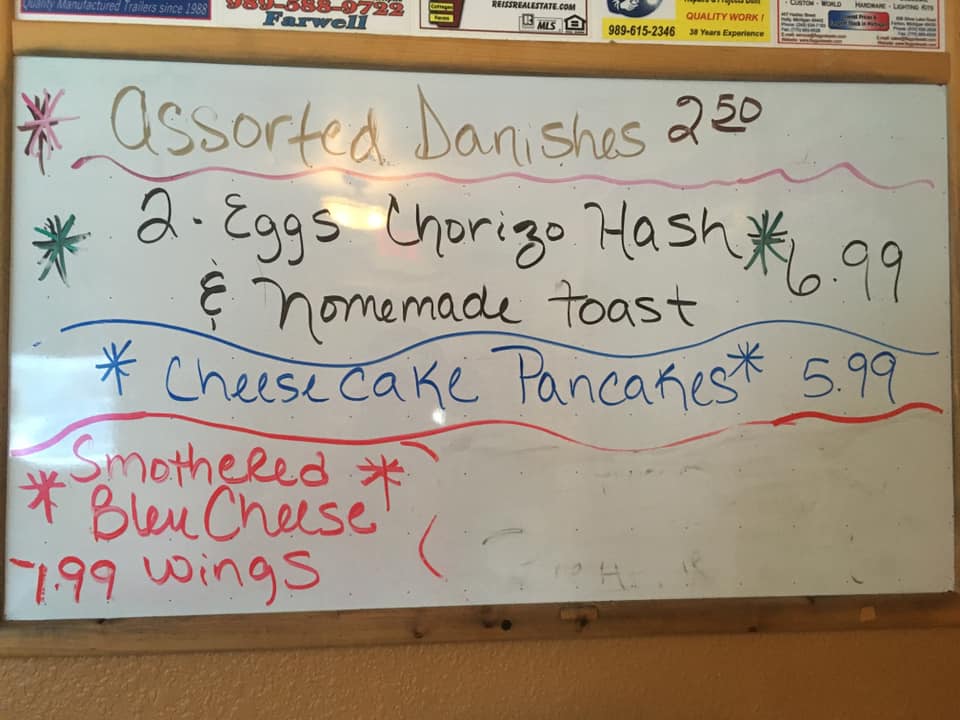 Quality Manufactured Trailers since 1988
989-588-9722
Farwell
REISSREALESTATE.COM
MLS
989-615-2346
QUALITY WORK!
38 Years Experience
* Assorted Danishes 2 50
* 2 - Eggs Chorizo Hash * 6.99
& homemade toast
* Cheesecake Pancakes * 5.99
* Smothered *
Bleu Cheese
7.99 wings